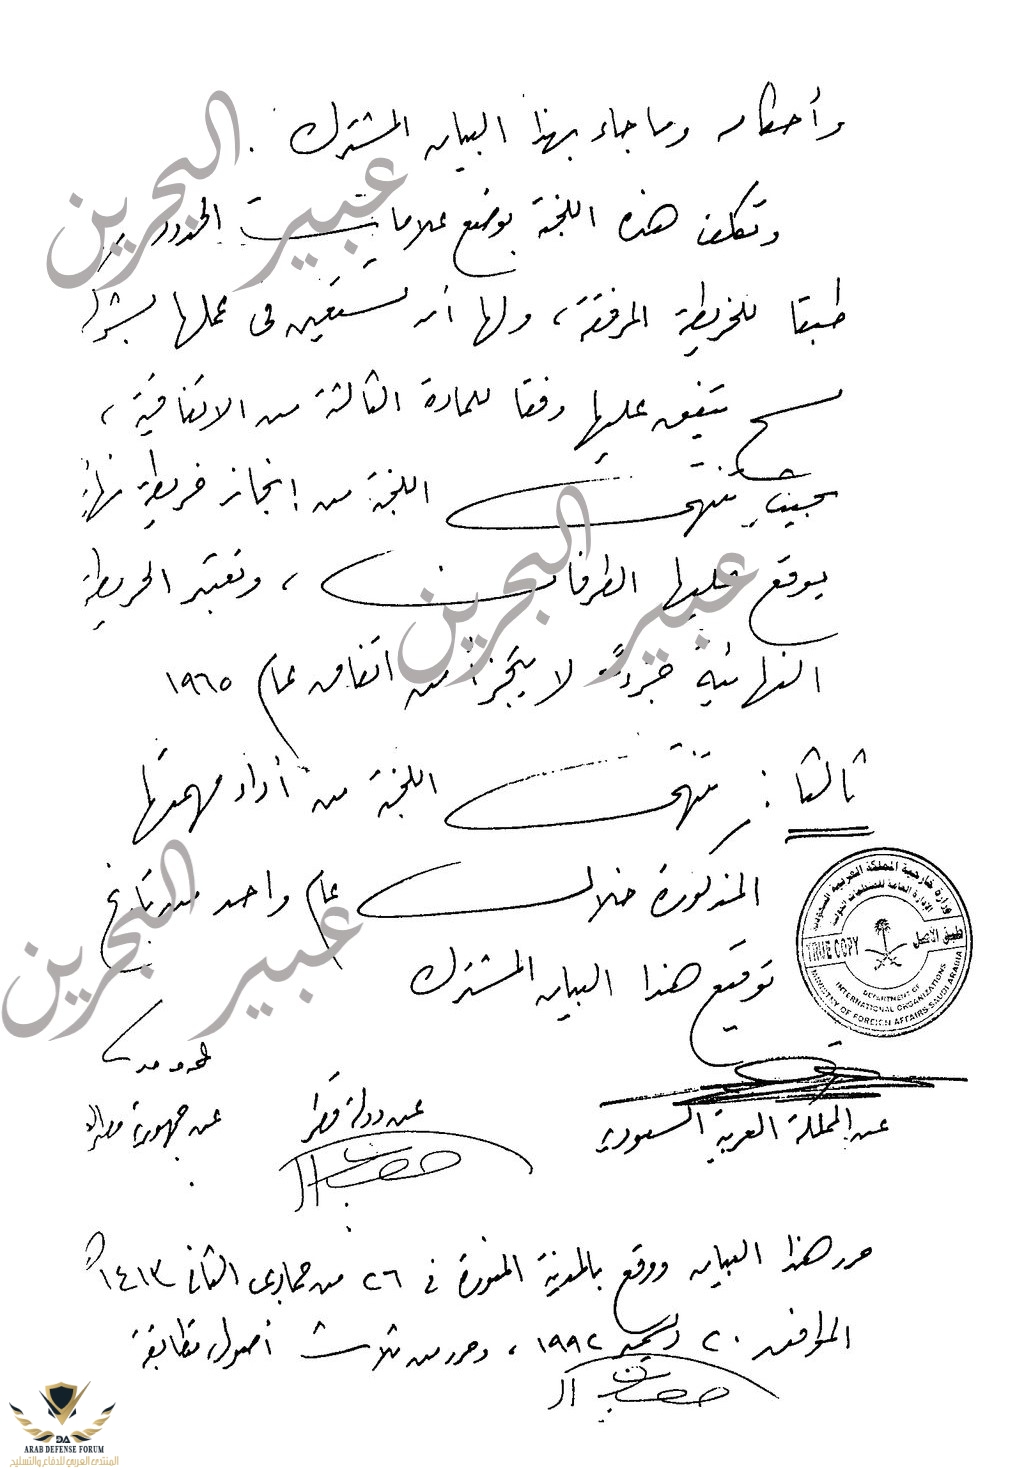 وأحكامه وما جاء بهذا البيان المشترك .
وتكلف هذه اللجنة بوضع علامات الحدود
طبقا للخريطة المرفقة ، ولها أن تستعين فى عملها بشركة
مسح يتفق عليها وفقا للمادة الثالثة من الاتفاقية ،
بحيث تنتهى اللجنة من إنجاز خريطة نهائية
يوقع عليها الطرفان ، وتعتبر الخريطة
النهائية جزءاً لا يتجزأ من اتفاق عام ١٩٦٥
ثالثا : تنتهى اللجنة من أداء مهمتها
المذكورة خلال عام واحد من تاريخ
توقيع هذا البيان المشترك
وزارة خارجية المملكة العربية السعودية
الادارة العامة للمنظمات الدولية
طبق الأصل
TRUE COPY
DEPARTMENT OF
INTERNATIONAL ORGANIZATIONS
MINISTRY OF FOREIGN AFFAIRS SAUDI ARABIA
عن المملكة العربية السعودية
عن دولة قطر
عن جمهورية مصر
حرر هذا البيان ووقع بالمدينة المنورة فى ٢٦ من جمادى الثانى ١٤١٣ هـ
الموافق ٢٠ ديسمبر ١٩٩٢ ، وحرر من ثلاث أصول متطابقة
عبير البحرين
عبير البحرين
عبير البحرين
DA
ARAB DEFENSE FORUM
المنتدى العربي للدفاع والتسليح